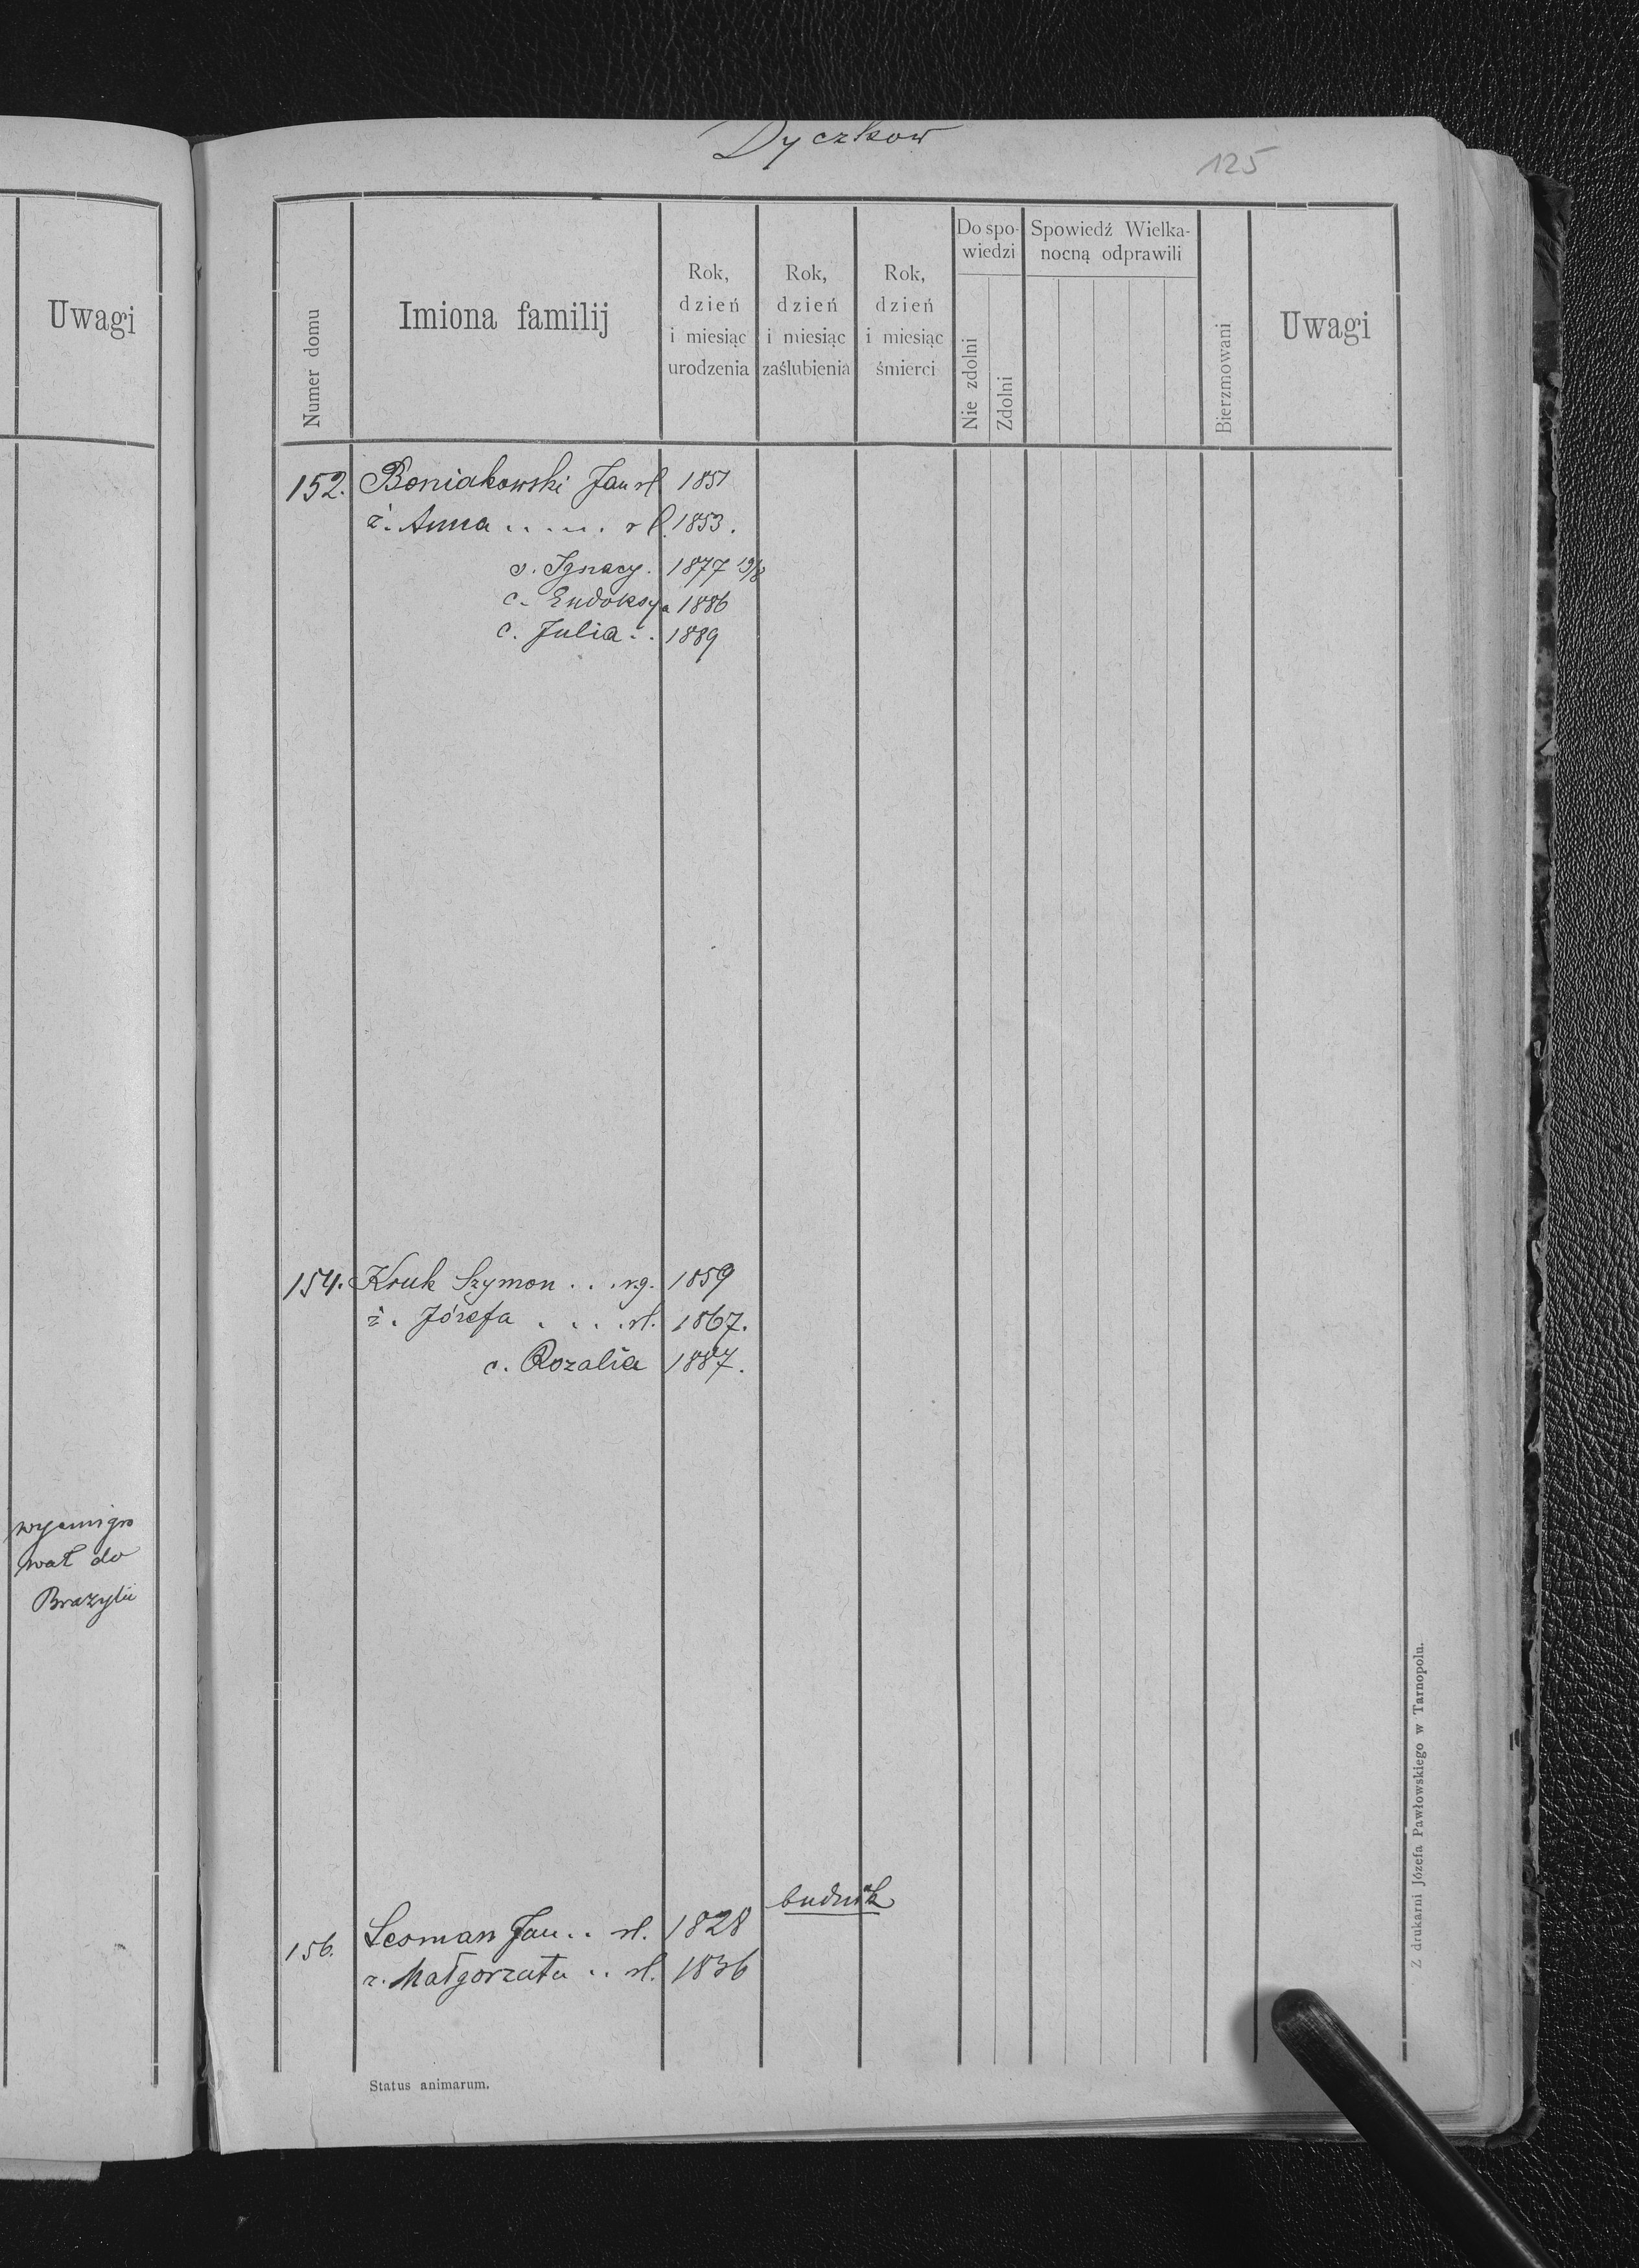 Uwagi
wyemigro
wał do
Brazylii
Dyczkow
125
Numer domu
Imiona familij
Rok,
dzień
i miesiąc
urodzenia
Rok,
dzień
i miesiąc
zaślubienia
Rok,
dzień
i miesiąc
śmierci
Do spo-
wiedzi
Nie zdolni
Zdolni
Spowiedź Wielka-
nocną odprawili
Bierzmowani
Uwagi
152. Boniakowski Jan rł 1851
ż. Anna . . . . . rł. 1853.
s. Ignacy. 1877 19/8
c. Eudoksya 1886
c. Julia . . 1889
154. Kruk Szymon . . . rg. 1859
ż. Józefa . . . . rł. 1867.
c. Rozalia 1887.
budnik
156. Lesman Jan . . rł. 1828
ż. Małgorzata . . rł. 1836
Status animarum.
Z drukarni Józefa Pawłowskiego w Tarnopolu.